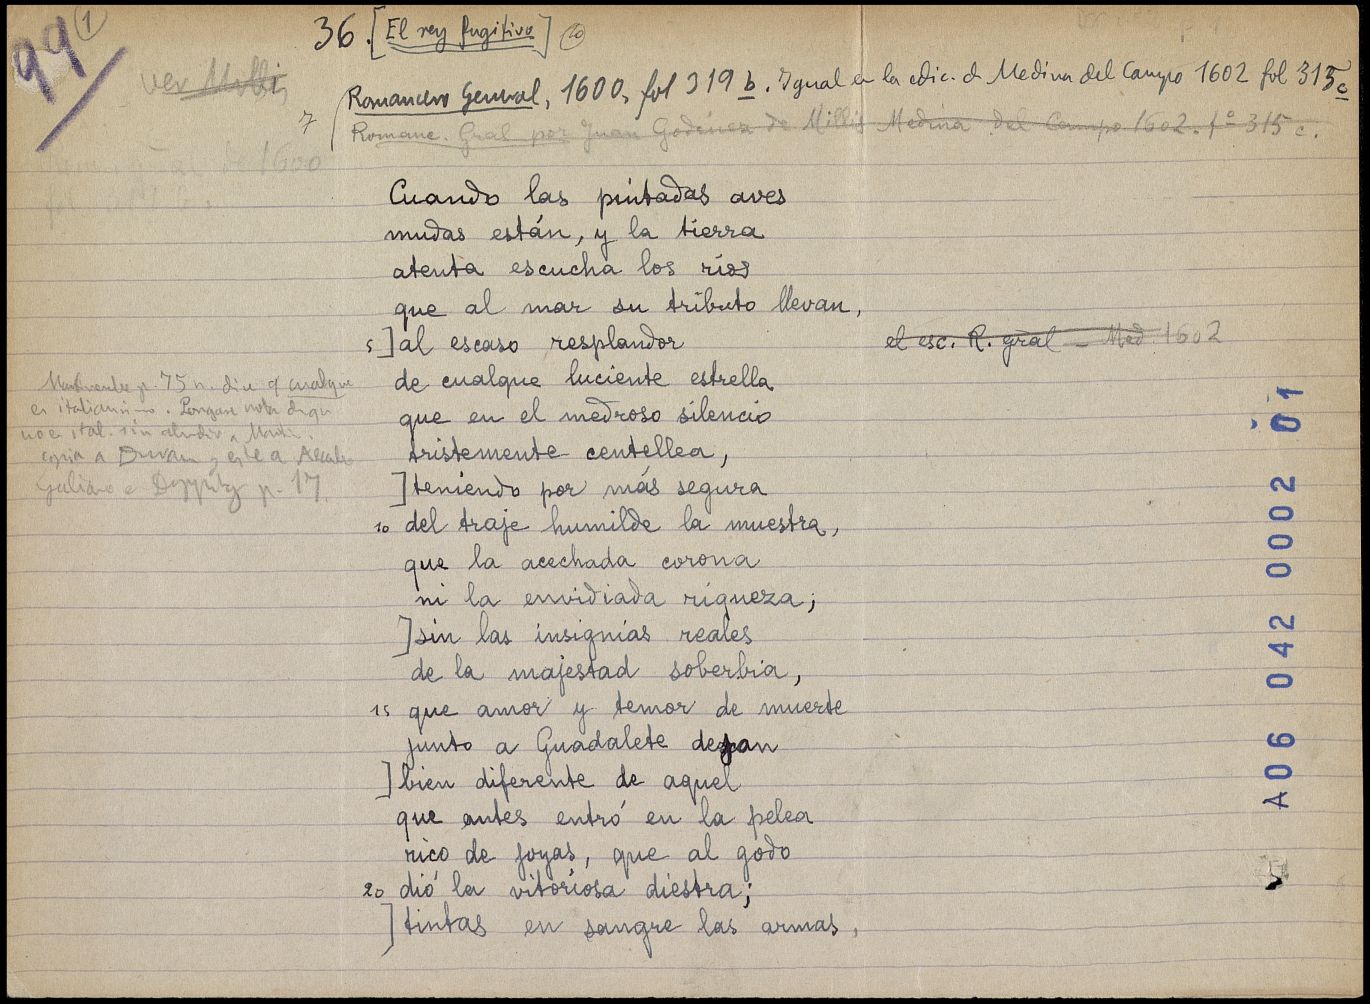 99 1
36. [El rey fugitivo] 20
ver Milli
7
Romancero General, 1600, fol 319 b. Igual en la edic. d Medina del Campo 1602 fol 315 c
Romanc. Gral por Juan Godínez de Millis Medina del Campo 1602. fº 315 c.
de 1600
Cuando las pintadas aves
mudas están, y la tierra
atenta escucha los ríos
que al mar su tributo llevan,
5 ] al escaso resplandor
el esc. R. gral - Med. 1602
de cualque luciente estrella
que en el medroso silencio
tristemente centellea,
] teniendo por más segura
10 del traje humilde la muestra,
que la acechada corona
ni la envidiada riqueza;
] sin las insignias reales
de la majestad soberbia,
15 que amor y temor de muerte
junto a Guadalete dejan
] bien diferente de aquel
que antes entró en la pelea
rico de joyas, que al godo
20 dió la vitoriosa diestra;
] tintas en sangre las armas,
p. 75 n. dice q cualque
es italianismo. Pongase nota
no es ital. sin aludir a
copia a Duran y este a Alcalá
Galiano p. 17.
A06 042 0002 01